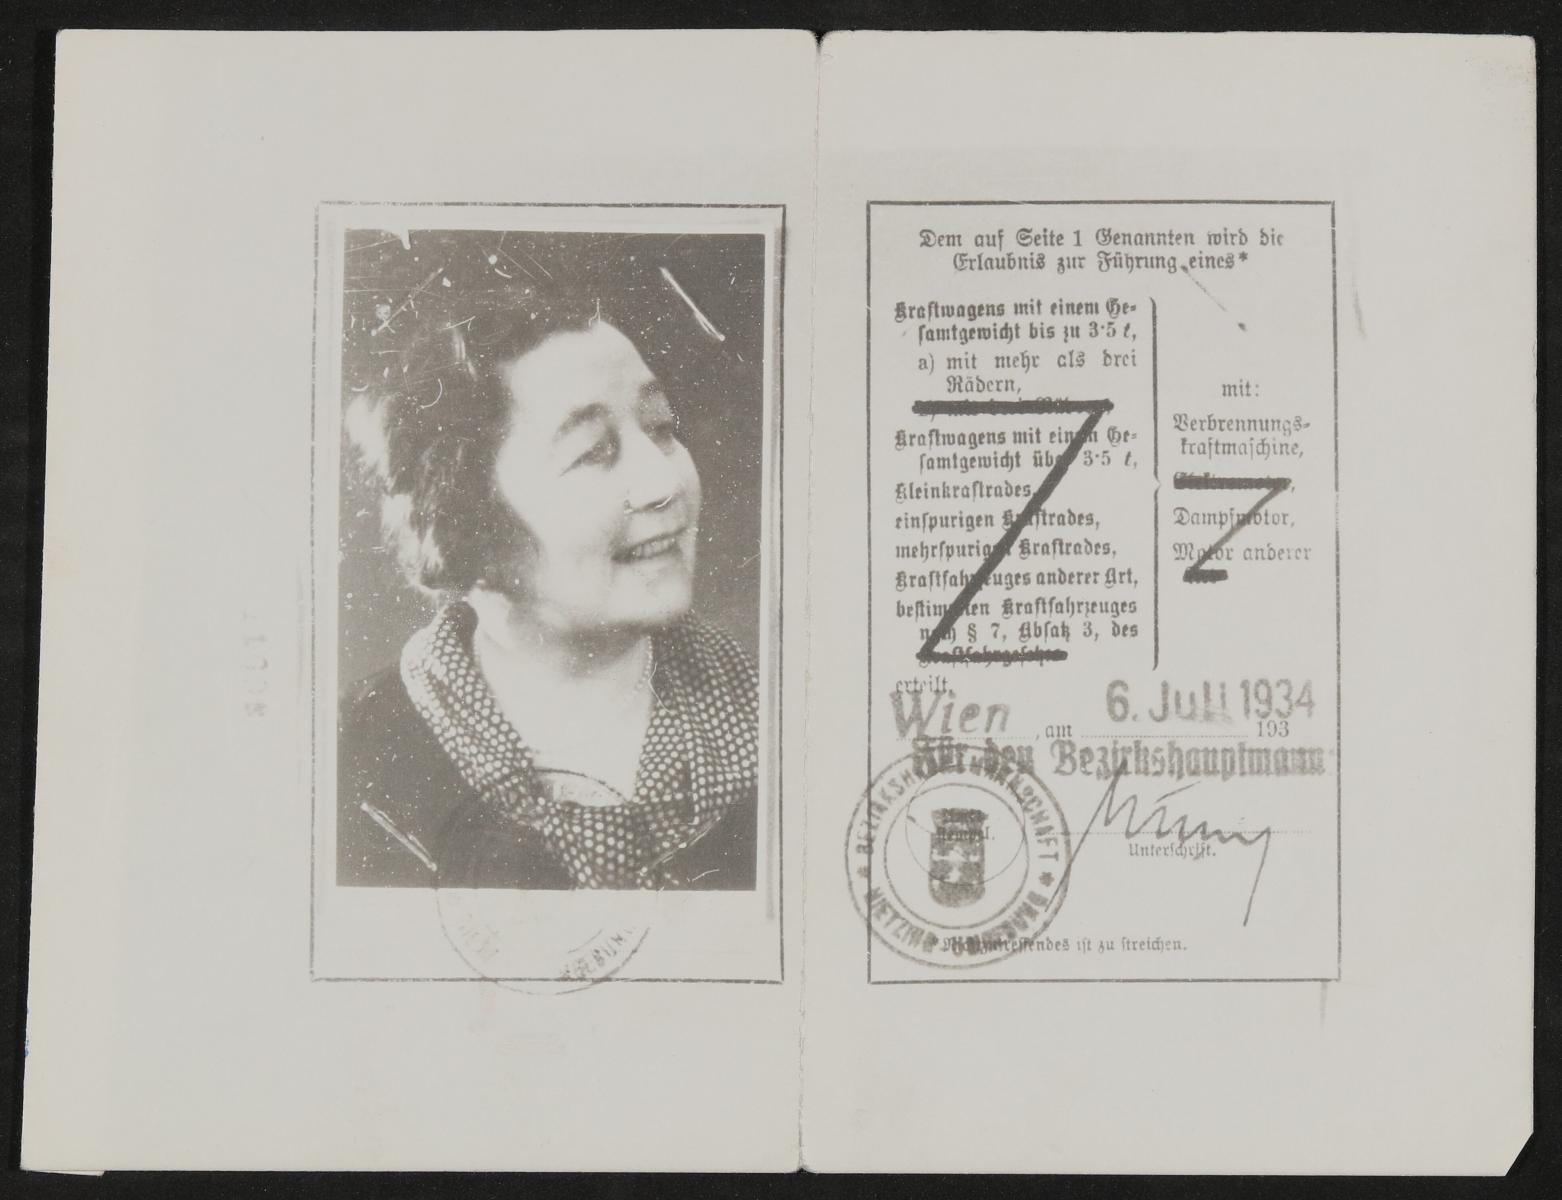 Dem auf Seite 1 Genannten wird die
Erlaubnis zur Führung eines*
Kraftwagens mit einem Ge-
samtgewicht bis zu 3·5 t,
a) mit mehr als drei
Rädern,
Kraftwagens mit einem Ge-
samtgewicht über 3·5 t,
Kleinkraftrades,
einspurigen Kraftrades,
mehrspurigen Kraftrades,
Kraftfahrzeuges anderer Art,
bestimmten Kraftfahrzeuges
nach § 7, Absatz 3, des
Kraftfahrgesetzes
mit:
Verbrennungs-
kraftmaschine,
Elektromotor,
Dampfmotor,
Motor anderer
Art
erteilt.
Wien, am 6. Juli 1934 193
Für den Bezirkshauptmann
BEZIRKSHAUPTMANNSCHAFT
HIETZING UMGEBUNG
Stempel.
Unterschrift.
* Nichtzutreffendes ist zu streichen.
UMGEBUNG